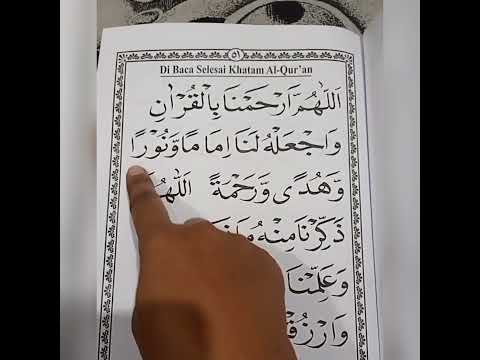 ٥١
Di Baca Selesai Khatam Al-Qur'an
اَللّٰهُمَّ ارْحَمْنَا بِالْقُرْاٰنِ
وَاجْعَلْهُ لَنَا اِمَامًا وَّنُوْرًا
وَّهُدًى وَّرَحْمَةً
ذَكِّرْنَا مِنْهُ
وَعَلِّمْنَا